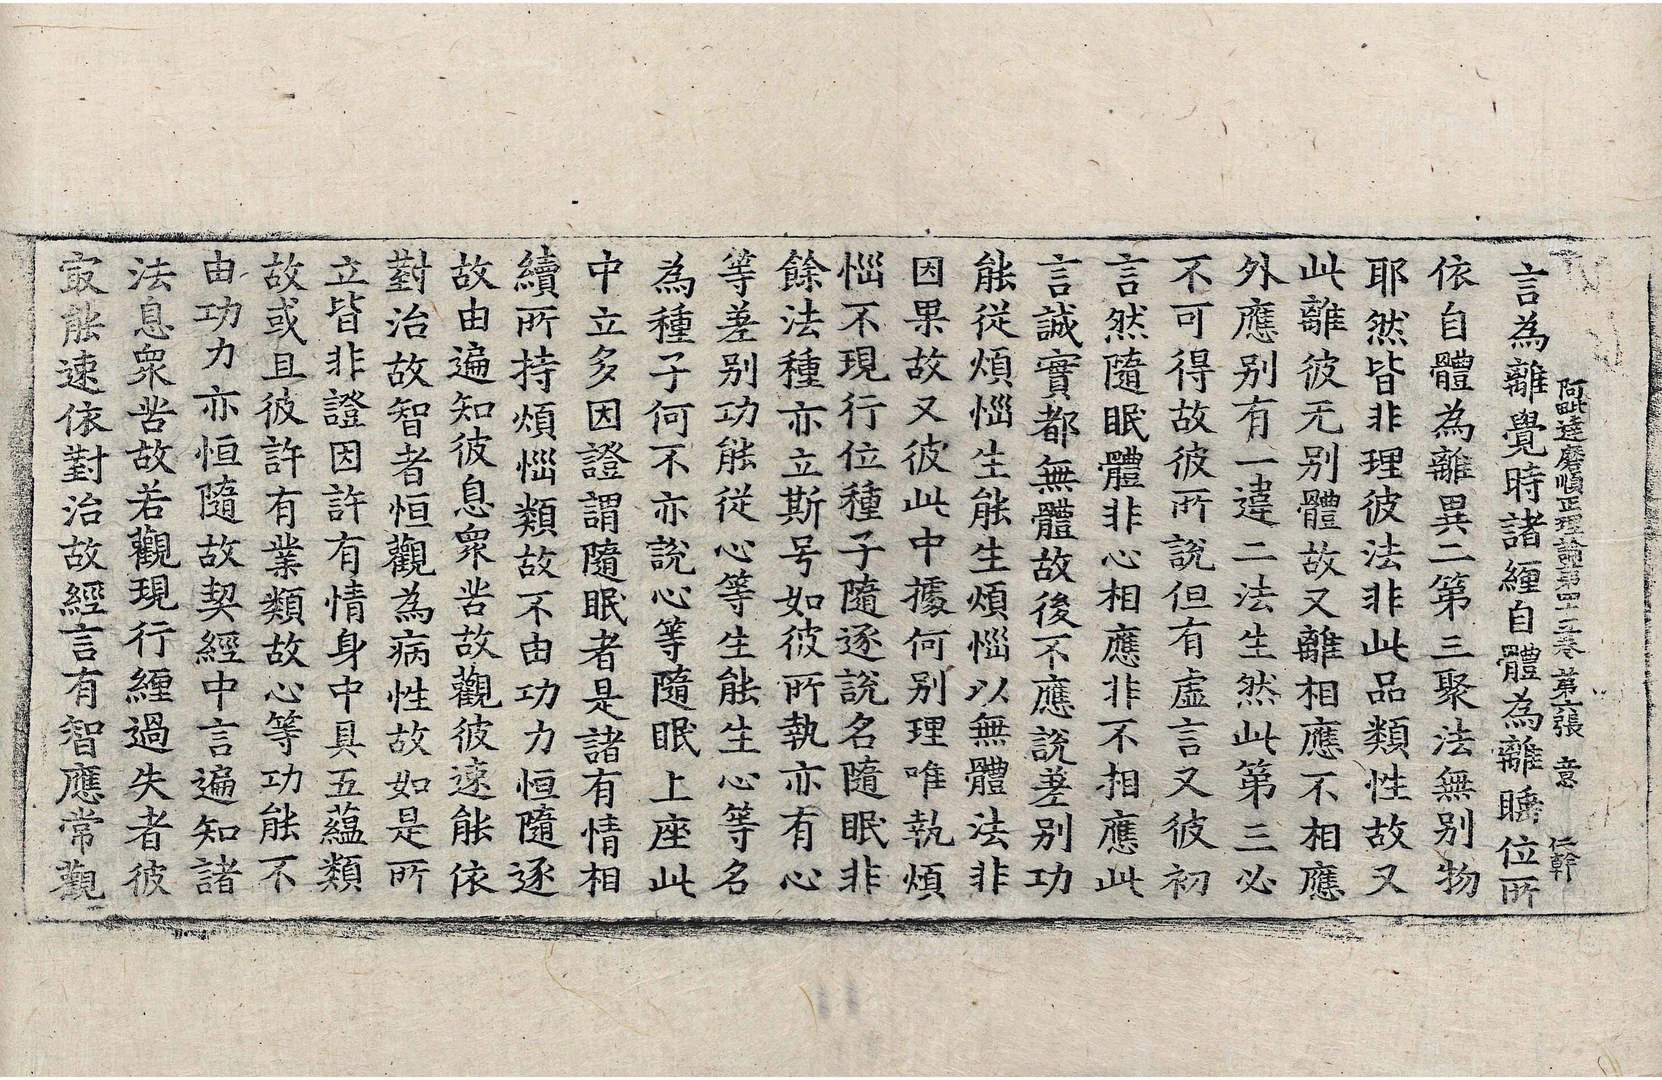 阿毗達磨順正理論第四十五卷 第六張 意 仁幹
言為離覺時諸纏自體為離睡位所
依自體為離異二第三聚法無別物
耶然皆非理彼法非此品類性故又
此離彼无別體故又離相應不相應
外應別有一違二法生然此第三必
不可得故彼所說但有虛言又彼初
言然隨眠體非心相應非不相應此
言誠實都無體故後不應說差別功
能從煩惱生能生煩惱以無體法非
因果故又彼此中據何別理唯執煩
惱不現行位種子隨逐說名隨眠非
餘法種亦立斯号如彼所執亦有心
等差別功能從心等生能生心等名
為種子何不亦說心等隨眠上座此
中立多因證謂隨眠者是諸有情相
續所持煩惱類故不由功力恒隨逐
故由遍知彼息衆苦故觀彼速能依
對治故智者恒觀為病性故如是所
立皆非證因許有情身中具五蘊類
故或且彼許有業類故心等功能不
由功力亦恒隨故契經中言遍知諸
法息衆苦故若觀現行纏過失者彼
㝡能速依對治故經言有智應常觀